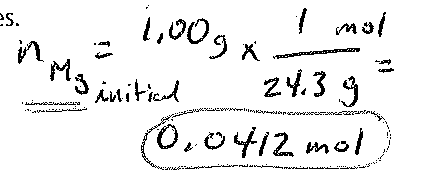 es.
n Mg initial = 1.00 g x 1 mol / 24.3 g =
0.0412 mol